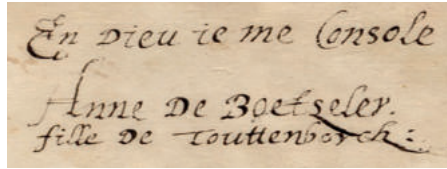 En Dieu ie me Console
Anne De Boetseler.
fille De Touttenborch: